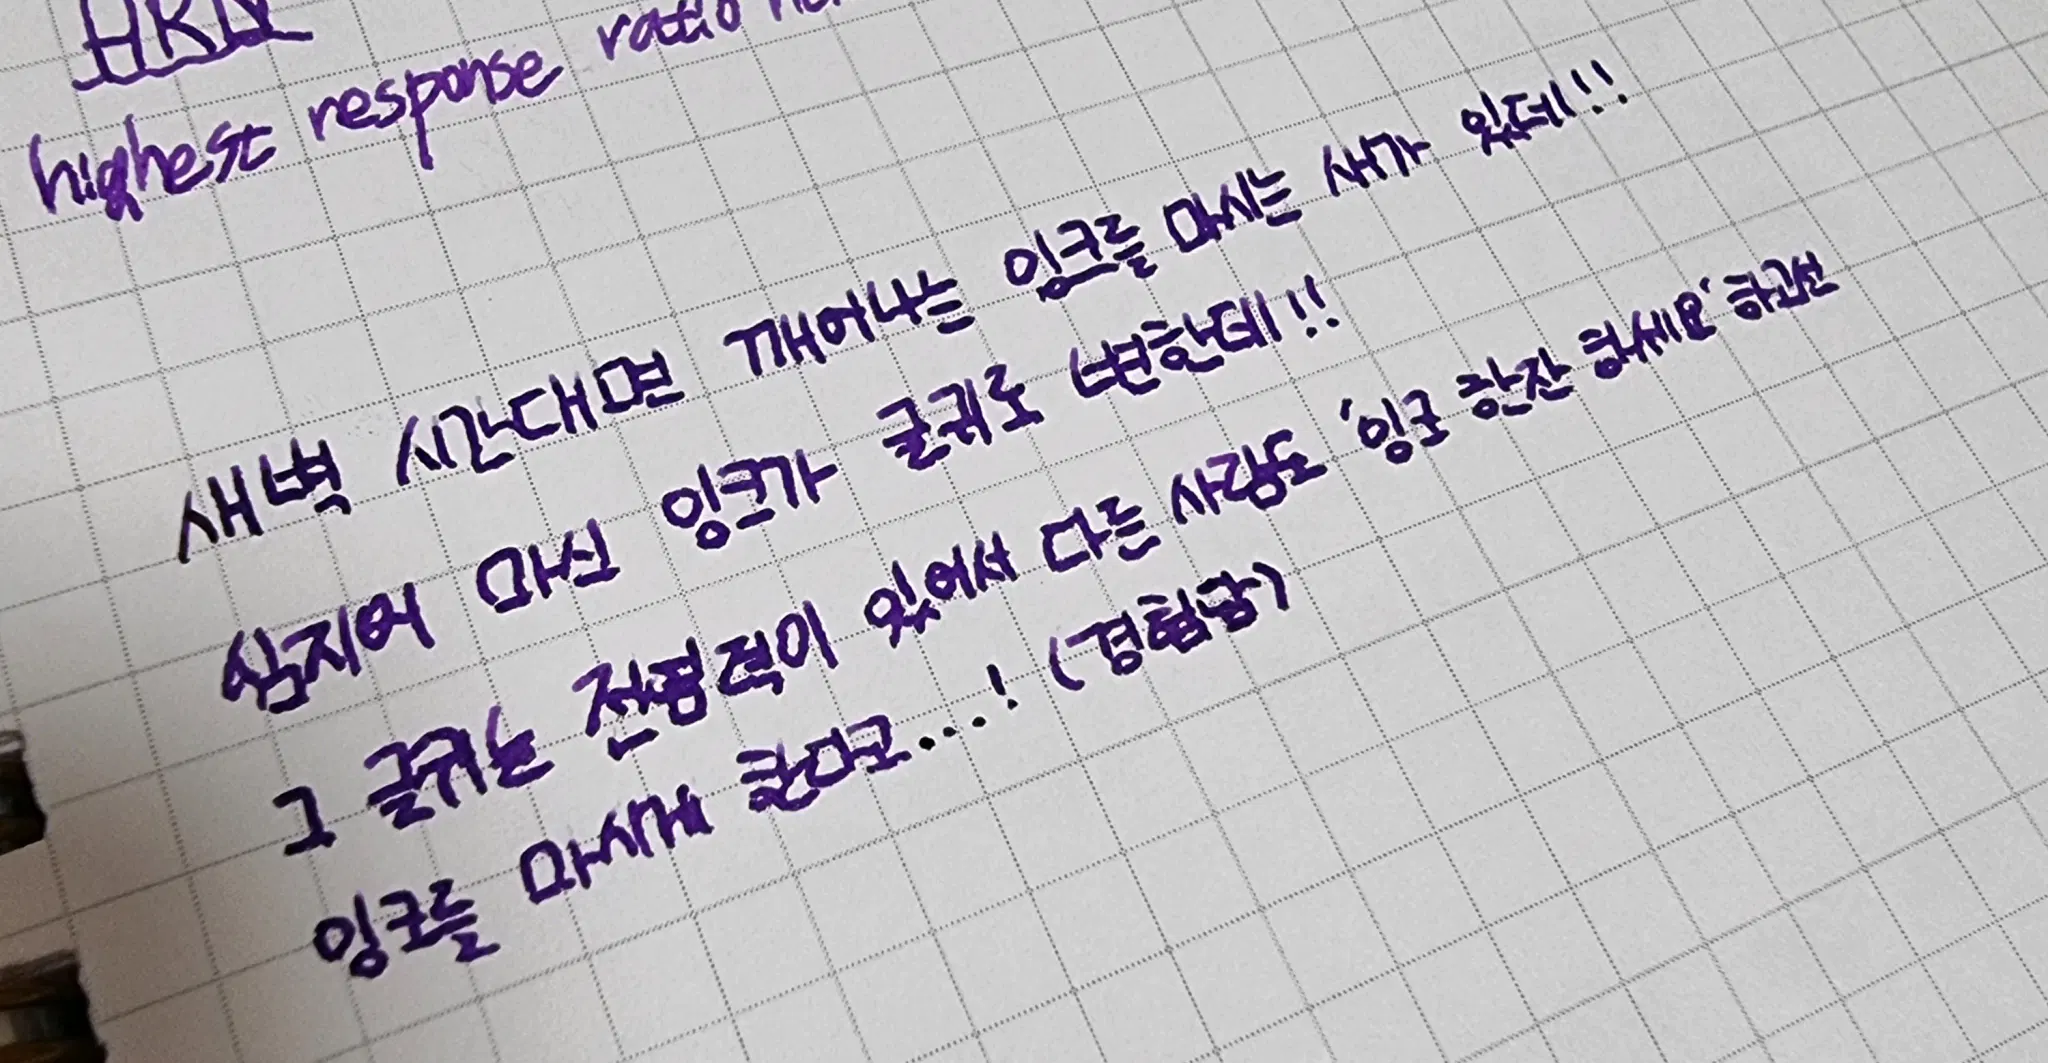 HRN
highest response ratio
새벽 시간대면 깨어나는 잉크를 마시는 새가 있데!!
심지어 마신 잉크가 글귀로 변한데!!
그 글귀는 전염적이 있어서 다른 사람도 '잉크 한잔 하세요' 하면서
잉크를 마시게 한다고....! (경험담)